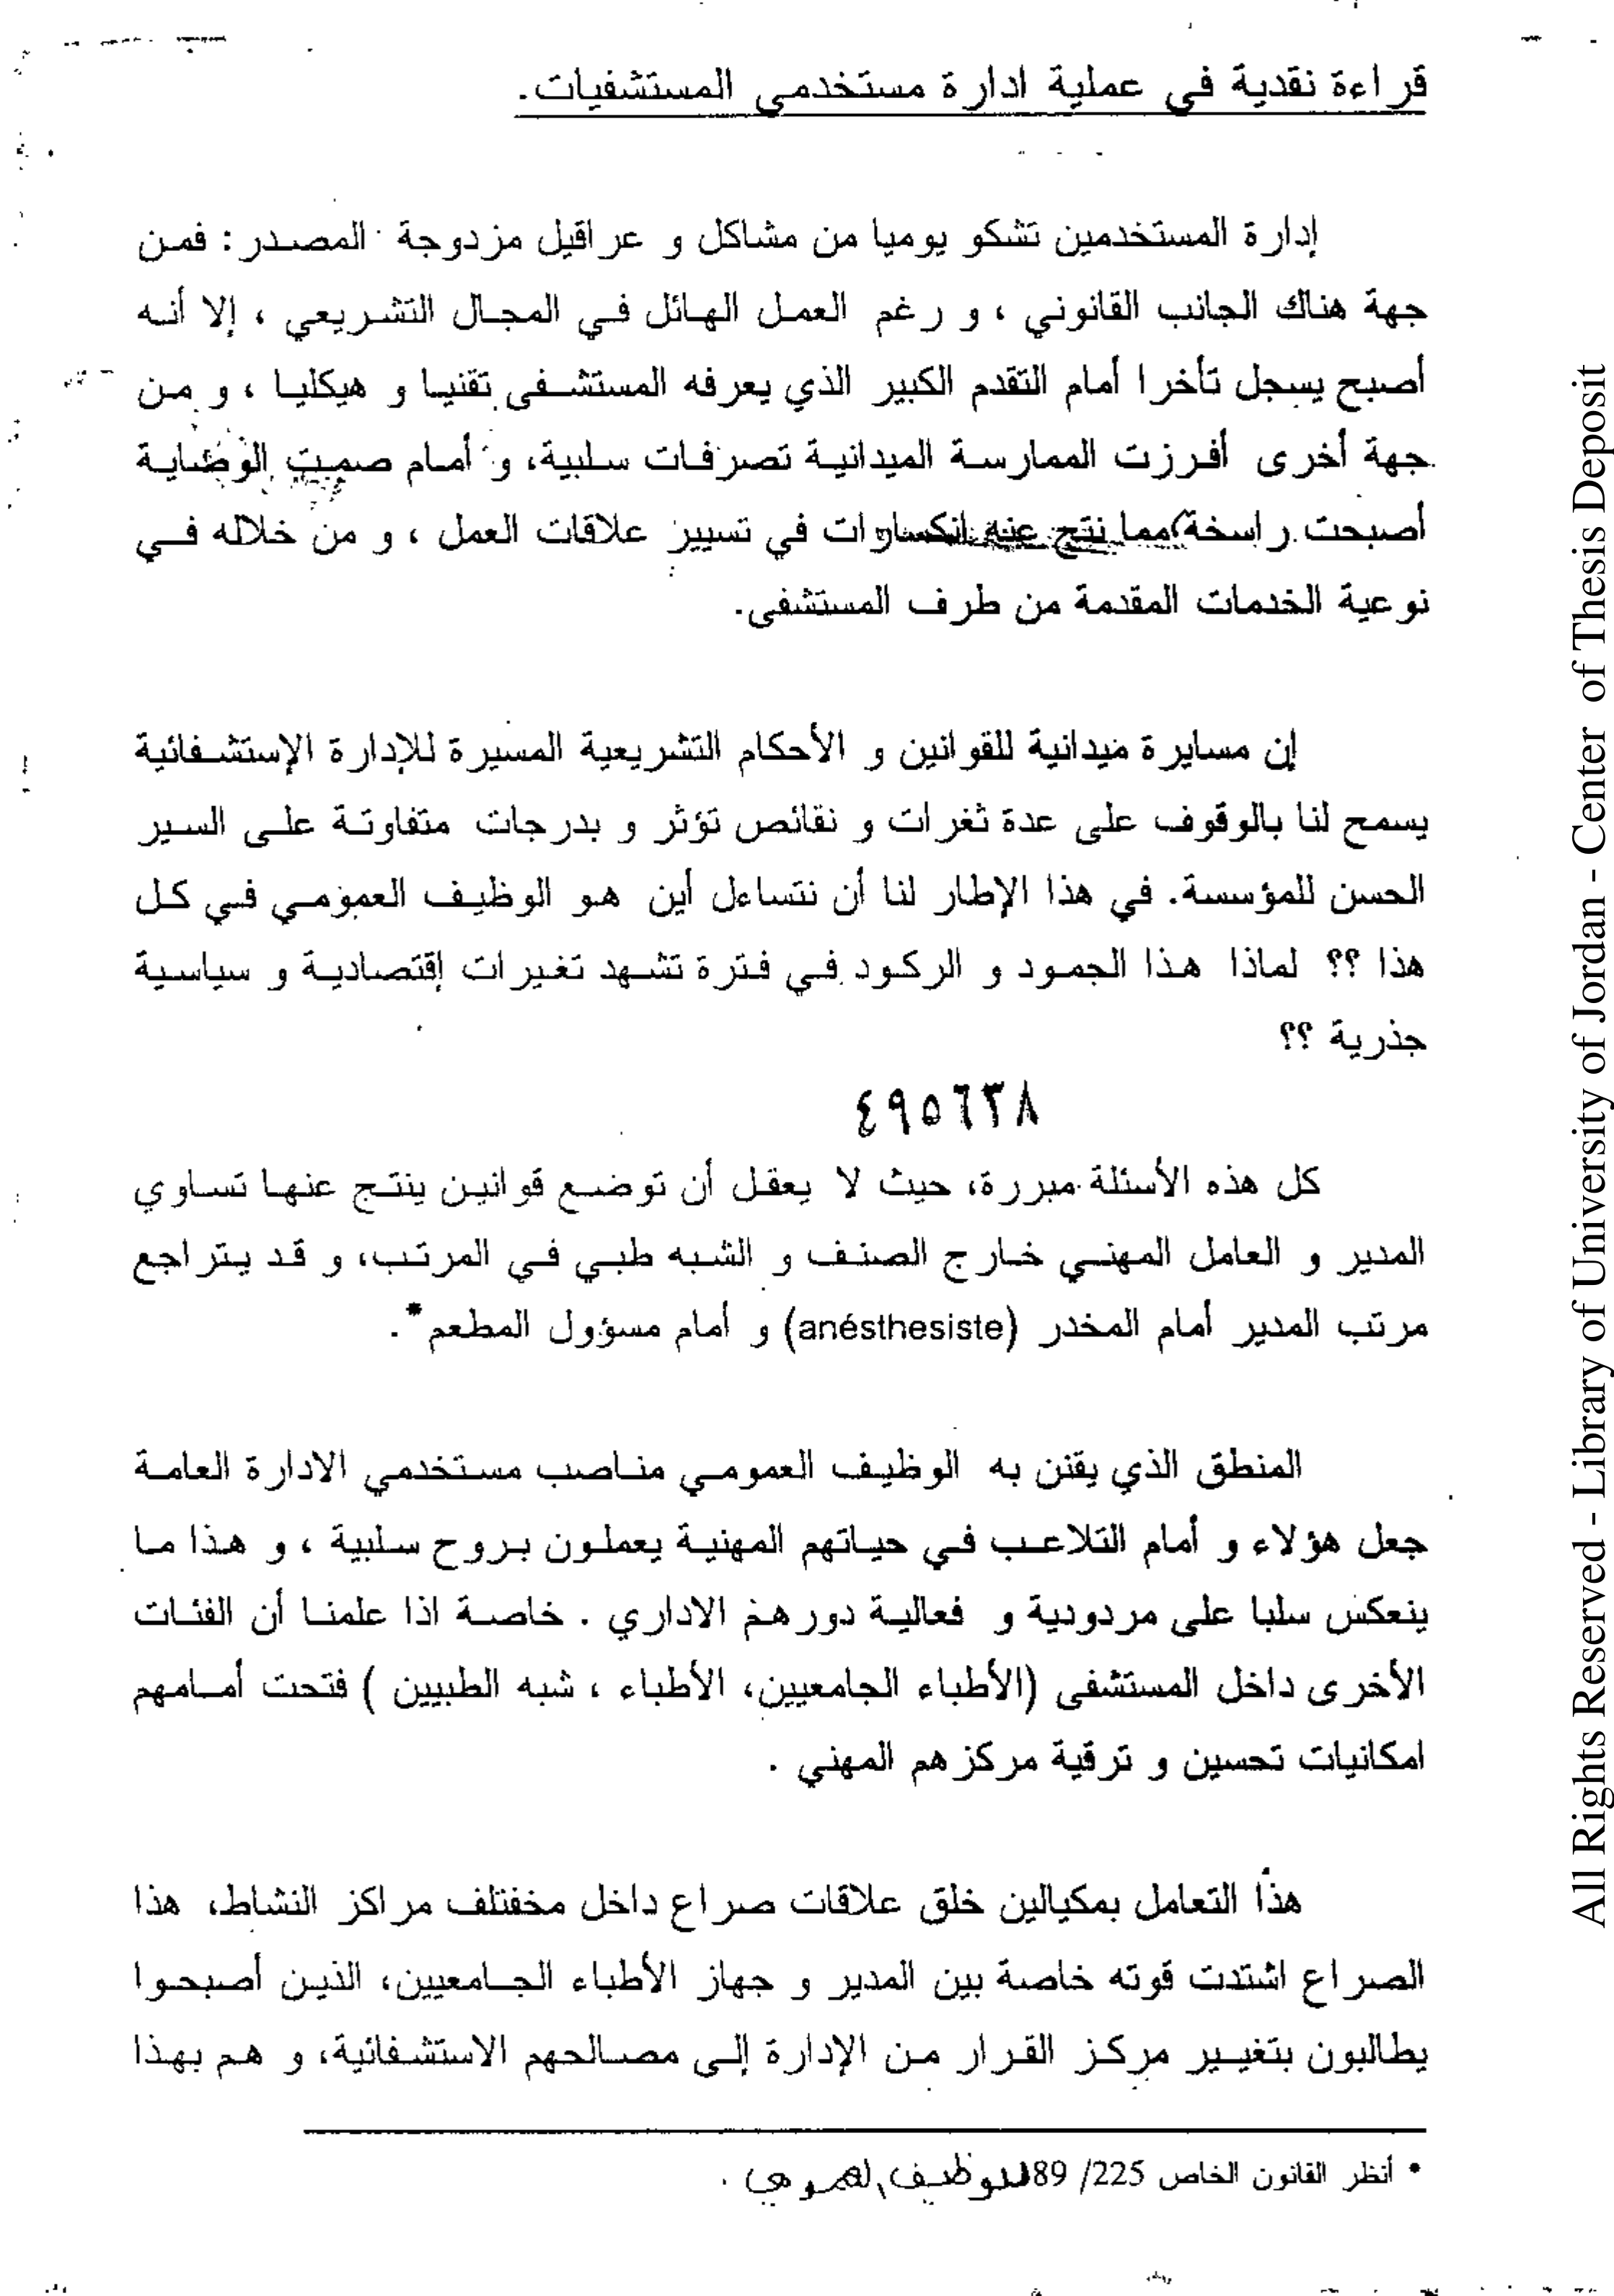 قراءة نقدية في عملية ادارة مستخدمي المستشفيات.
إدارة المستخدمين تشكو يوميا من مشاكل و عراقيل مزدوجة المصدر: فمن
جهة هناك الجانب القانوني ، و رغم العمل الهائل في المجال التشريعي ، إلا أنه
أصبح يسجل تأخرا أمام التقدم الكبير الذي يعرفه المستشفى تقنيا و هيكليا ، و من
جهة أخرى أفرزت الممارسة الميدانية تصرفات سلبية، و أمام صمت الوصاية
أصبحت راسخة مما نتج عنه انكسارات في تسيير علاقات العمل ، و من خلاله في
نوعية الخدمات المقدمة من طرف المستشفى.
إن مسايرة ميدانية للقوانين و الأحكام التشريعية المسيرة للإدارة الإستشفائية
يسمح لنا بالوقوف على عدة ثغرات و نقائص تؤثر و بدرجات متفاوتة على السير
الحسن للمؤسسة. في هذا الإطار لنا أن نتساءل أين هو الوظيف العمومي في كل
هذا ؟؟ لماذا هذا الجمود و الركود في فترة تشهد تغيرات إقتصادية و سياسية
جذرية ؟؟
٤٩٥٦٣٨
كل هذه الأسئلة مبررة، حيث لا يعقل أن توضع قوانين ينتج عنها تساوي
المدير و العامل المهني خارج الصنف و الشبه طبي في المرتب، و قد يتراجع
مرتب المدير أمام المخدر (anésthesiste) و أمام مسؤول المطعم* .
المنطق الذي يقنن به الوظيف العمومي مناصب مستخدمي الادارة العامة
جعل هؤلاء و أمام التلاعب في حياتهم المهنية يعملون بروح سلبية ، و هذا ما
ينعكس سلبا على مردودية و فعالية دورهم الاداري . خاصة اذا علمنا أن الفئات
الأخرى داخل المستشفى (الأطباء الجامعيين، الأطباء ، شبه الطبيين ) فتحت أمامهم
امكانيات تحسين و ترقية مركزهم المهني .
هذا التعامل بمكيالين خلق علاقات صراع داخل مخفتلف مراكز النشاط، هذا
الصراع اشتدت قوته خاصة بين المدير و جهاز الأطباء الجامعيين، الذين أصبحوا
يطالبون بتغيير مركز القرار من الإدارة إلى مصالحهم الاستشفائية، و هم بهذا
* أنظر القانون الخاص 225/ 89 للوظيف العمومي .
All Rights Reserved - Library of University of Jordan - Center of Thesis Deposit